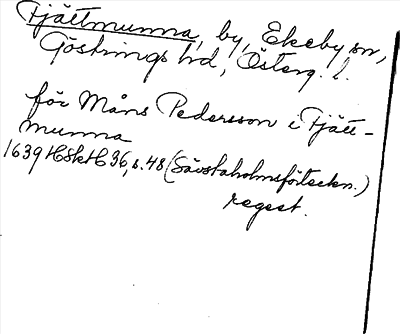 Fjättmunna, by, Ekeby sn,
Göstrings hd, Österg. l.
för Måns Pedersson i Fjätt-
munna
1639 HSkH 36, s. 48 (Säfstaholmsförteckn.)
regest.